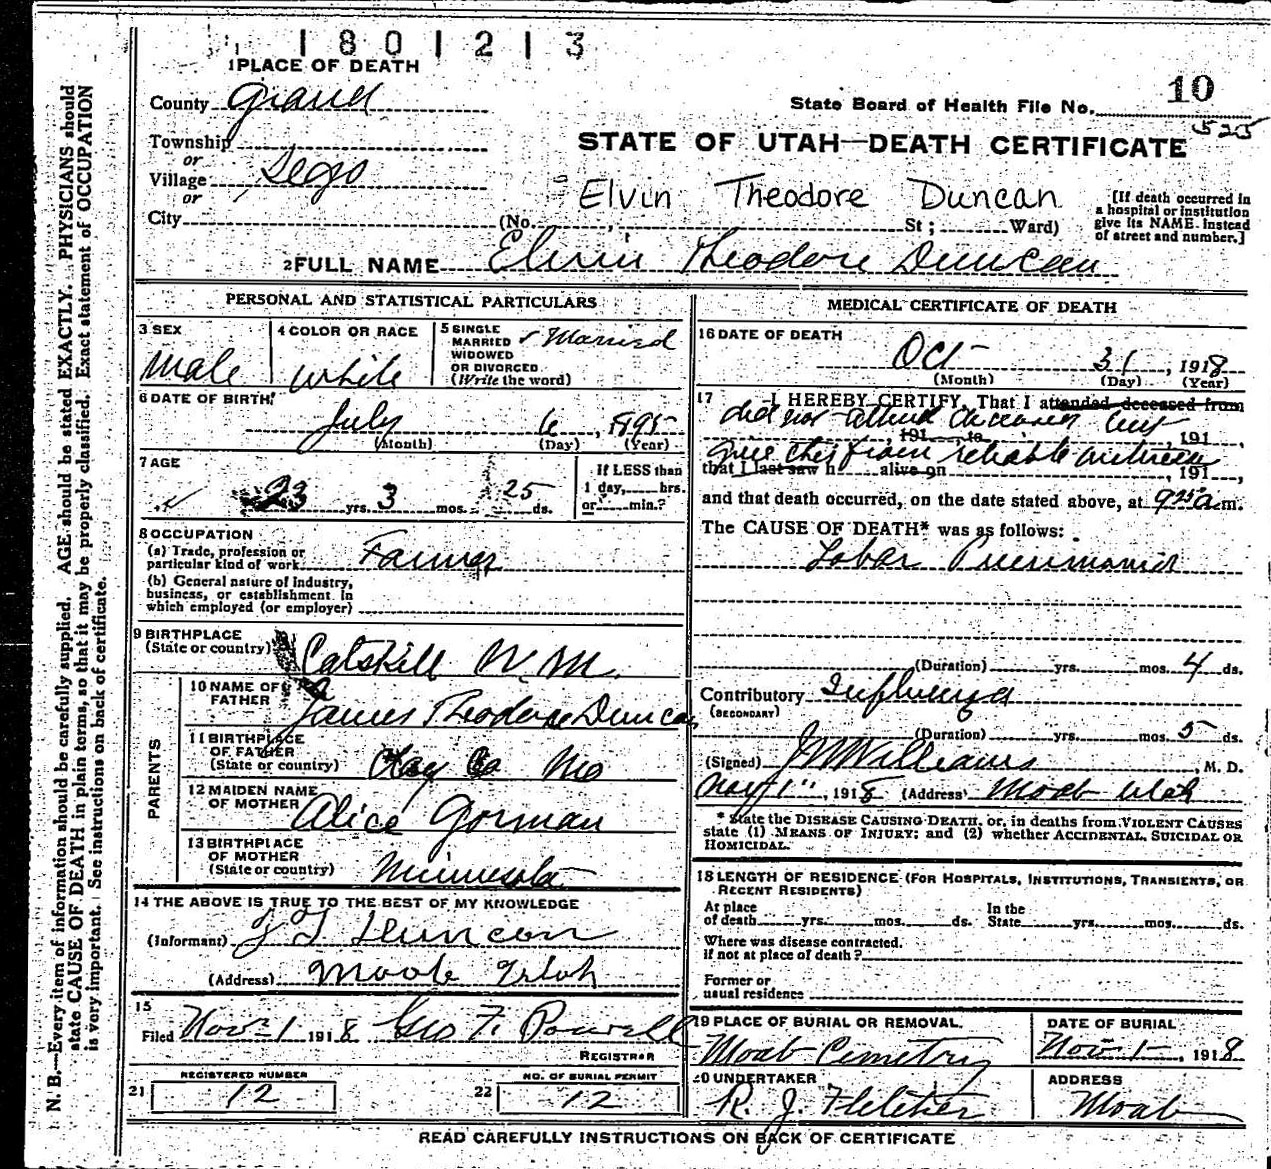 1801213
1 PLACE OF DEATH
10
County Grand
State Board of Health File No.
525
Township
or
Village Sego
or
City
STATE OF UTAH—DEATH CERTIFICATE
Elvin Theodore Duncan
(No. St; Ward)
[If death occurred in
a hospital or institution
give its NAME instead
of street and number.]
2 FULL NAME Elvin Theodore Duncan
PERSONAL AND STATISTICAL PARTICULARS
3 SEX
Male
4 COLOR OR RACE
White
5 SINGLE
MARRIED
WIDOWED
OR DIVORCED
(Write the word)
Married
6 DATE OF BIRTH
July 6, 1895
(Month) (Day) (Year)
7 AGE
23 yrs. 3 mos. 25 ds.
If LESS than
1 day, hrs.
or min.?
8 OCCUPATION
(a) Trade, profession or
particular kind of work Farmer
(b) General nature of industry,
business, or establishment in
which employed (or employer)
9 BIRTHPLACE
(State or country) Catskill N.M.
PARENTS
10 NAME OF
FATHER James Theodore Duncan
11 BIRTHPLACE
OF FATHER
(State or country) Clay Co Mo
12 MAIDEN NAME
OF MOTHER Alice Gorman
13 BIRTHPLACE
OF MOTHER
(State or country) Minnesota
14 THE ABOVE IS TRUE TO THE BEST OF MY KNOWLEDGE
(Informant) J T Duncan
(Address) Moab Utah
15
Filed Nov 1 1918 Geo F. Powell
REGISTRAR
21 REGISTERED NUMBER
12
22 NO. OF BURIAL PERMIT
12
MEDICAL CERTIFICATE OF DEATH
16 DATE OF DEATH
Oct 31, 1918
(Month) (Day) (Year)
17 I HEREBY CERTIFY, That I attended deceased from
did not attend deceased but
, 191 , to , 191 ,
give this from reliable witness
that I last saw h alive on , 191 ,
and that death occurred, on the date stated above, at 9 25 a m.
The CAUSE OF DEATH* was as follows:
Lobar Pneumonia
(Duration) yrs. mos. 4 ds.
Contributory Influenza
(SECONDARY)
(Duration) yrs. mos. 5 ds.
(Signed) J W Williams, M. D.
Nov 1", 1918 (Address) Moab Utah
* State the DISEASE CAUSING DEATH, or, in deaths from VIOLENT CAUSES
state (1) MEANS OF INJURY; and (2) whether ACCIDENTAL, SUICIDAL OR
HOMICIDAL.
18 LENGTH OF RESIDENCE (FOR HOSPITALS, INSTITUTIONS, TRANSIENTS, OR
RECENT RESIDENTS)
At place
of death yrs. mos. ds.
In the
State yrs. mos. ds.
Where was disease contracted,
if not at place of death?
Former or
usual residence
19 PLACE OF BURIAL OR REMOVAL.
Moab Cemetry
DATE OF BURIAL
Nov 1, 1918
20 UNDERTAKER
R. J. Fletcher
ADDRESS
Moab
READ CAREFULLY INSTRUCTIONS ON BACK OF CERTIFICATE
N. B.—Every item of information should be carefully supplied. AGE should be stated EXACTLY. PHYSICIANS should
state CAUSE OF DEATH in plain terms, so that it may be properly classified. Exact statement of OCCUPATION
is very important. See instructions on back of certificate.